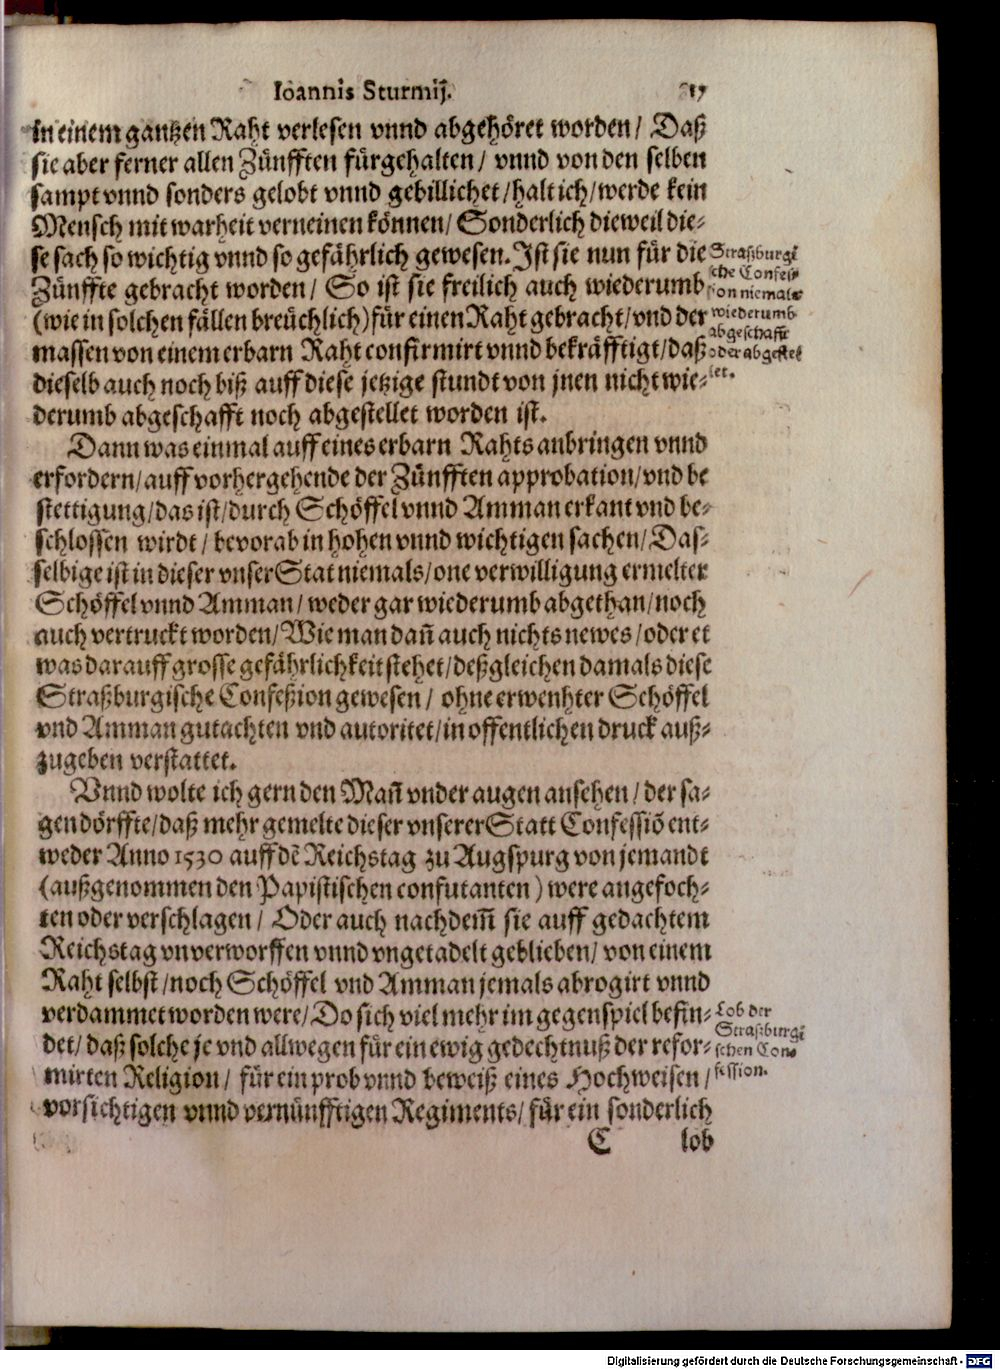 Ioannis Sturmij. 17
in einem gantzen Raht verlesen vnnd abgehöret worden/ Daß
sie aber ferner allen Zünfften fürgehalten/ vnnd von den selben
sampt vnnd sonders gelobt vnnd gebillichet/halt ich/werde kein
Mensch mit warheit verneinen können/ Sonderlich dieweil die-
se sach so wichtig vnnd so gefährlich gewesen. Ist sie nun für die
Zünffte gebracht worden/ So ist sie freilich auch wiederumb
(wie in solchen fällen breüchlich) für einen Raht gebracht/vnd der
massen von einem erbarn Raht confirmirt vnnd bekräfftigt/daß
dieselb auch noch biß auff diese jetzige stundt von jnen nicht wie-
derumb abgeschafft noch abgestellet worden ist.
Straßburgi
sche Confes-
sion niemals
wiederumb
abgeschafft
oder abgestel
let.
Dann was einmal auff eines erbarn Rahts anbringen vnnd
erfordern/auff vorhergehende der Zünfften approbation/vnd be
stettigung/das ist/durch Schöffel vnnd Amman erkant vnd be-
schlossen wirdt/ bevorab in hohen vnnd wichtigen sachen/ Das-
selbige ist in dieser vnser Stat niemals/one verwilligung ermelter
Schöffel vnnd Amman/ weder gar wiederumb abgethan/noch
auch vertruckt worden/Wie man dañ auch nichts newes/oder et
was darauff grosse gefährlichkeit stehet/deßgleichen damals diese
Straßburgische Confeßion gewesen/ ohne erwenhter Schöffel
vnd Amman gutachten vnd autoritet/in offentlichen druck auß-
zugeben verstattet.
Vnnd wolte ich gern den Mañ vnder augen ansehen/ der sa-
gen dörffte/daß mehr gemelte dieser vnserer Statt Confessiõ ent-
weder Anno 1530 auff dẽ Reichstag zu Augspurg von jemandt
(außgenommen den Papistischen confutanten) were angefoch-
ten oder verschlagen/ Oder auch nachdem̃ sie auff gedachtem
Reichstag vnverworffen vnnd vngetadelt geblieben/ von einem
Raht selbst/noch Schöffel vnd Amman jemals abrogirt vnnd
verdammet worden were/ Do sich viel mehr im gegenspiel befin-
det/ daß solche je vnd allwegen für ein ewig gedechtnuß der refor-
mirten Religion/ für ein prob vnnd beweiß eines Hochweisen/
vorsichtigen vnnd vernünfftigen Regiments/ für ein sonderlich
Lob der
Straßburgi
schen Con-
fession.
C lob
Digitalisierung gefördert durch die Deutsche Forschungsgemeinschaft - DFG